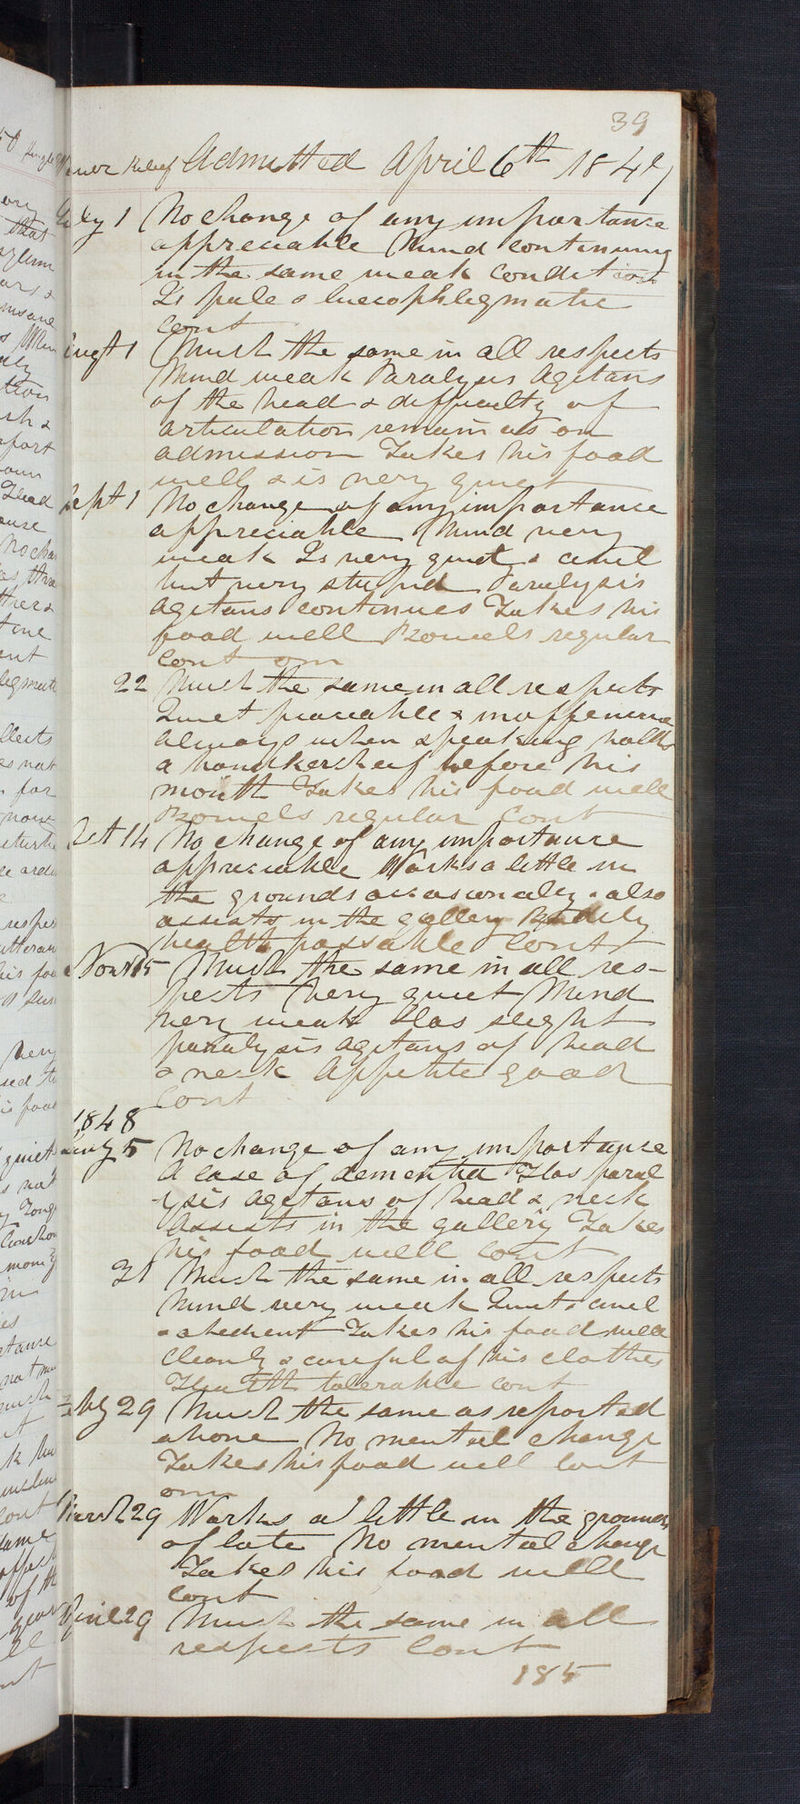 39
Admitted April 6th 1847
July 1 No change of any importance
appreciable Mind continuing
in the same weak condition
Is pale & lucophlegmatic
cont
Augt 1 Much the same in all respects
Mind weak Paralysis Agitans
of the head & difficulty of
articulation remain as on
admission Takes his food
well & is very quiet
Sept 1 No change of any importance
appreciable Mind very
weak Is very quiet & civil
but very stupid Paralysis
agitans continues Takes his
food well Bowels regular
cont om
22 Much the same in all respects
Quiet peaceable & inoffensive
always when speaking holds
a handkercheif before his
mouth Takes his food well
Bowels regular Cont
Oct 14 No change of any importance
appreciable Works a little in
the grounds occasionaly & also
assists in the gallery Bodily
health passable Cont
Novr 15 Much the same in all res-
pects Very quiet Mind
very weak Has slight
paralysis agitans of head
& neck Appetite good
Cont
1848
Jany 5 No change of any importance
A case of dementia Has paral
-ysis agitans of head & neck
Assists in the gallery Takes
his food well cont
31 Much the same in all respects
Mind very weak Quiet & civil
& obedient Takes his food well
Cleanly & careful of his clothes
Health tolerable cont
Feby 29 Much the same as reported
above No mental change
Takes his food well cont
om
March 29 Works a little in the grounds
of late No mental change
Takes his food well
cont
April 29 Much the same in all
respects Cont
185